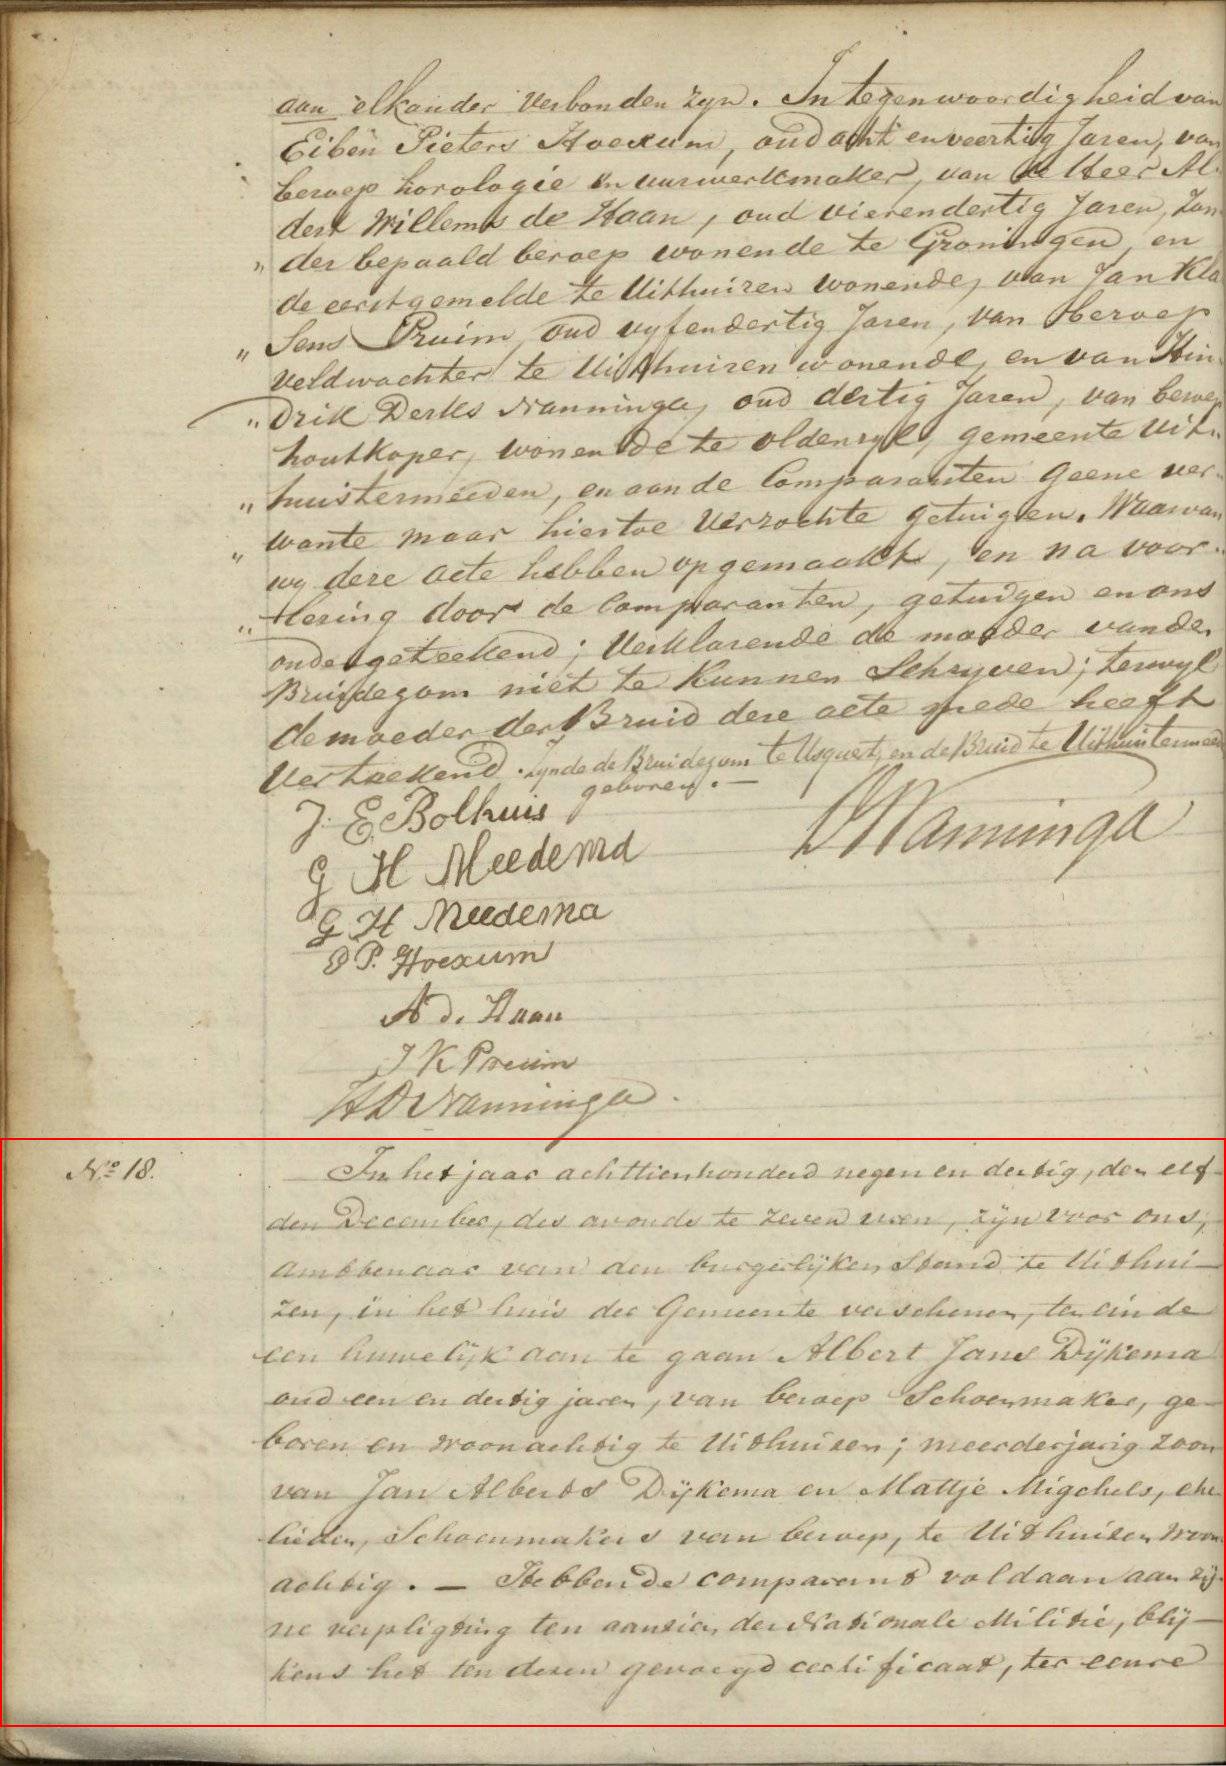 aan elkander verbonden zyn. In tegenwoordigheid van
Eibén Pieters Hoexum, oud acht en veertig Jaren, van
beroep horologie en uurwerkmaker, van de Heer Al-
dert Willems de Haan, oud vierendertig Jaren, zon-
„ der bepaald beroep wonende te Groningen, en
de eerstgemelde te Uithuizen wonende, van Jan Kla
„ Sens Pruim, oud vyfendertig Jaren, van beroep
veldwachter te Uithuizen wonende, en van Hin-
„ drik Derks Nanninga, oud dertig Jaren, van beroep
houtkoper, wonende te Oldenzyl, gemeente Uit„
„ huistermeeden, en aan de Comparanten geene ver-
„ wante maar hiertoe verzochte getuigen. Waarvan
wy deze acte hebben opgemaakt, en na voor„
„ lezing door de Comparanten, getuigen en ons
ondergeteekend; Verklarende de moeder van den
Bruidegom niet te kunnen Schryven; terwyl
de moeder der Bruid deze acte mede heeft
Vertoekend. Zynde de Bruidegom te Usquert, en de Bruid te Uithuistermeed
geboren. —
J. E. Bolhuis
DNanninga
G H Meedema
G H Meedema
E P. Hoexum
A de Haan
J K Pruim
H D Nanninga.
No 18.
In het jaar achttienhonderd negen en dertig, den elf-
den December, des avonds te zeven uren, zijn voor ons,
ambtenaar van den burgerlijken Stand te Uithui-
zen, in het huis der Gemeente verschenen, ten einde
een huwelijk aan te gaan Albert Jans Dijkema
oud een en dertig jaren, van beroep Schoenmaker, ge-
boren en woonachtig te Uithuizen; meerderjarig zoon
van Jan Alberts Dijkema en Mattje Migchels, ehe-
lieden, Schoenmakers van beroep, te Uithuizen woon-
achtig. — Hebbende comparant voldaan aan zij-
ne verpligting ten aanzien der Nationale Militie, blij-
kens het ten dezen gevoegd certificaat, ter eenre